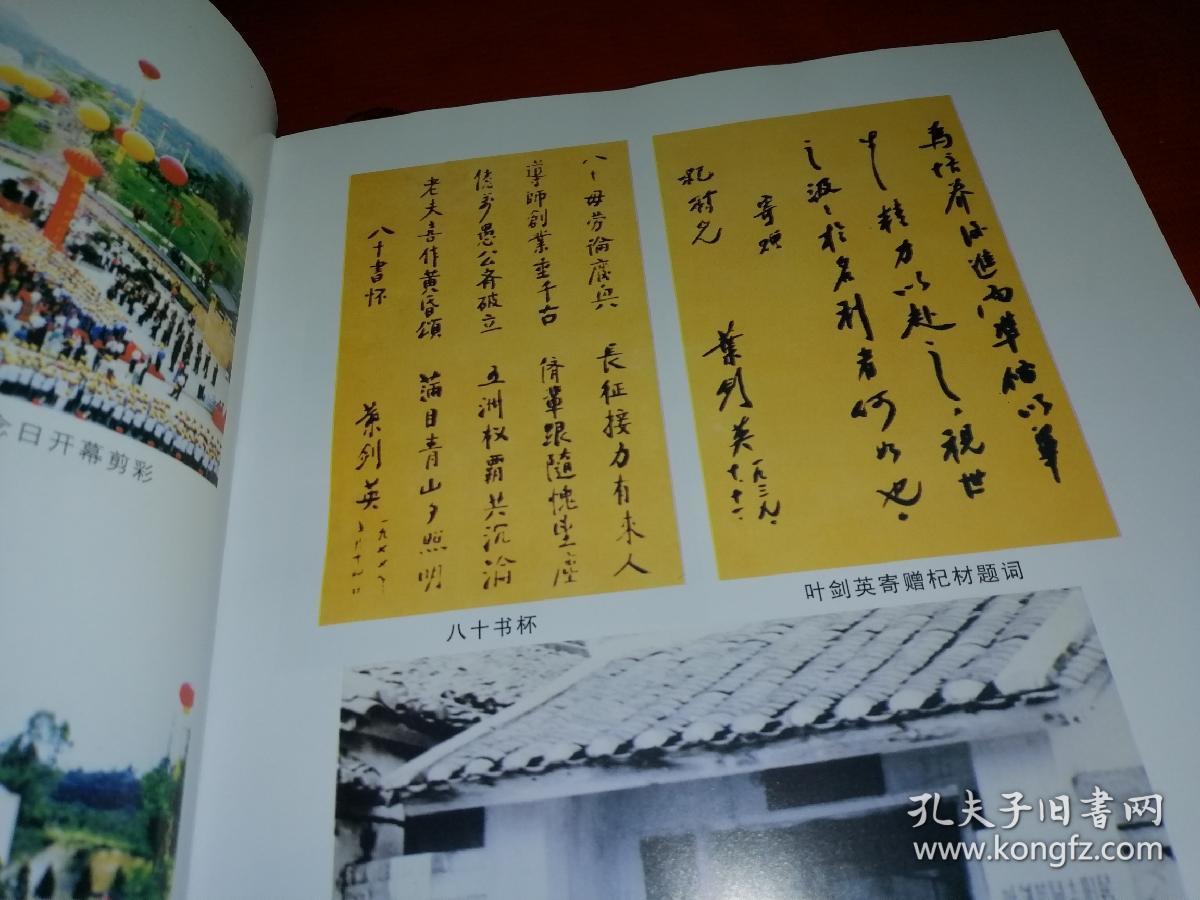 念日开幕剪彩
八十毋劳論廢興 長征接力有來人
導師創業垂千古 儕輩跟隨愧望塵
億萬愚公齊破立 五洲权霸共沉淪
老夫喜作黄昏頌 满目青山夕照明
八十書怀 葉劍英
一九七七年
八十书杯
為培养後進而準備以畢
生精力以赴之。視世
之汲汲於名利者何如也。
寄赠
杞材兄
葉劍英 一九三九、
十、十一
叶剑英寄赠杞材题词
孔夫子旧書网
www.kongfz.com